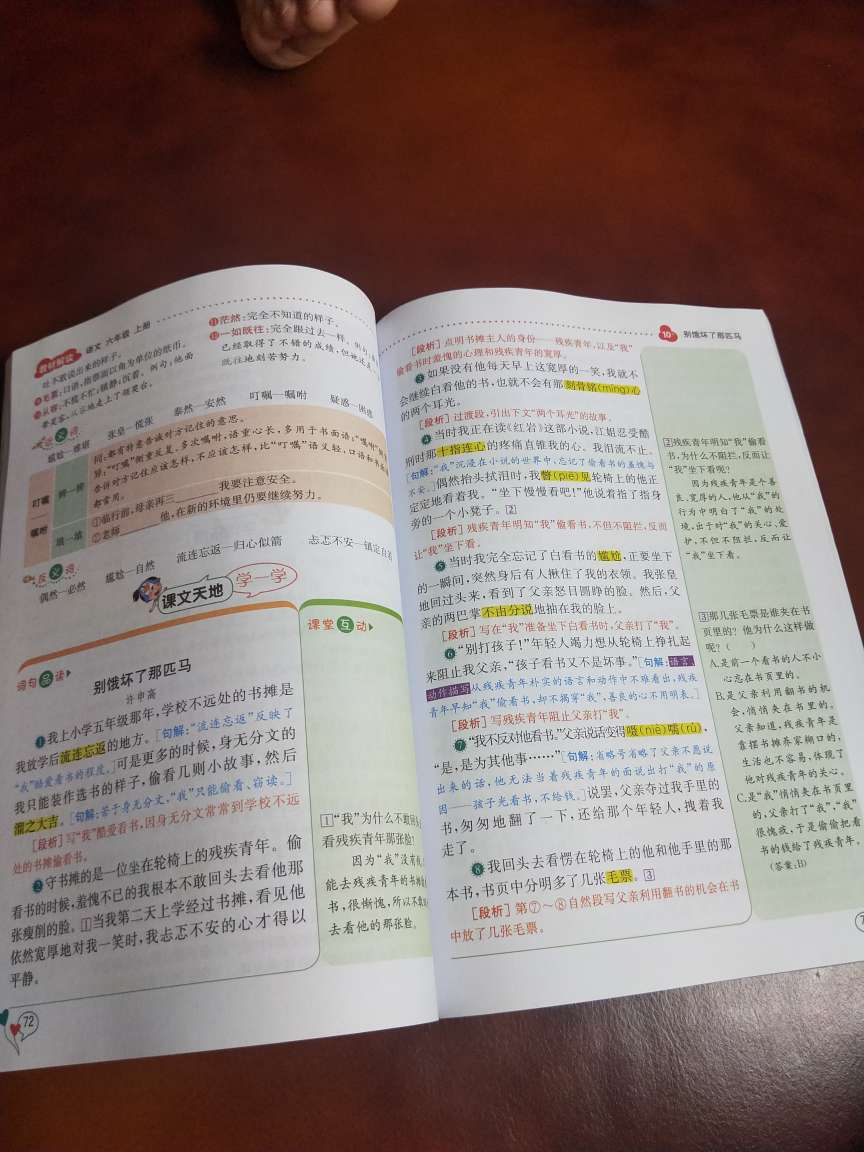 教材解读 语文 六年级 上册
吐不敢说出来的样子。
毛票:口语,指票面以角为单位的纸币。
从容:不慌不忙;镇静;沉着。例句:他面
带笑容,从容地走上了颁奖台。
⑪茫然:完全不知道的样子。
⑫一如既往:完全跟过去一样。例句:
已经取得了不错的成绩,但她还是
既往地刻苦努力。
近义词
尴尬—难堪 张皇—慌张 泰然—安然 叮嘱—嘱咐 疑惑—困惑
叮嘱
嘱咐
辨一辨
同:都有特意告诫对方记住的意思。
异:“叮嘱”侧重反复、多次嘱咐,语重心长,多用于书面语;“嘱咐”侧
告诉对方记住应该怎样,不应该怎样,比“叮嘱”语义轻,口语和书面
都常用。
填一填
①临行前,母亲再三 我要注意安全。
②老师 他,在新的环境里仍要继续努力。
反义词
偶然—必然 尴尬—自然 流连忘返—归心似箭 忐忑不安—镇定自若
课文天地 学一学
词句品读
课堂互动
别饿坏了那匹马
许申高
❶我上小学五年级那年,学校不远处的书摊是
我放学后流连忘返的地方。[句解:“流连忘返”反映了
“我”酷爱看书的程度。]可是更多的时候,身无分文的
我只能装作选书的样子,偷看几则小故事,然后
溜之大吉。[句解:苦于身无分文,“我”只能偷看、窃读。]
[段析]写“我”酷爱看书,因身无分文常常到学校不远
处的书摊偷看书。
❷守书摊的是一位坐在轮椅上的残疾青年。偷
看书的时候,羞愧不已的我根本不敢回头去看他那
张瘦削的脸。1当我第二天上学经过书摊,看见他
依然宽厚地对我一笑时,我忐忑不安的心才得以
平静。
1“我”为什么不敢回头
看残疾青年那张脸?
因为“我”没有
能去残疾青年的书摊
书,很惭愧,所以不敢
去看他的那张脸。
72
10 别饿坏了那匹马
[段析]点明书摊主人的身份——残疾青年,以及“我”
偷看书时羞愧的心理和残疾青年的宽厚。
❸如果没有他每天早上这宽厚的一笑,我就不
会继续白看他的书,也就不会有那刻骨铭(míng)心
的两个耳光。
[段析]过渡段,引出下文“两个耳光”的故事。
❹当时我正在读《红岩》这部小说,江姐忍受酷
刑时那十指连心的疼痛直锥我的心。我泪流不止。
[句解:“我”沉浸在小说的世界中,忘记了偷看书的羞愧与
不安。]偶然抬头拭泪时,我瞥(piē)见轮椅上的他正
定定地看着我。“坐下慢慢看吧!”他说着指了指身
旁的一个小凳子。2
[段析]残疾青年明知“我”偷看书,不但不阻拦,反而
让“我”坐下看。
❺当时我完全忘记了白看书的尴尬,正要坐下
的一瞬间,突然身后有人揪住了我的衣领。我张皇
地回过头来,看到了父亲怒目圆睁的脸。然后,父
亲的两巴掌不由分说地抽在我的脸上。
[段析]写在“我”准备坐下白看书时,父亲打了“我”。
❻“别打孩子!”年轻人竭力想从轮椅上挣扎起
来阻止我父亲,“孩子看书又不是坏事。”[句解:语言、
动作描写从残疾青年朴实的语言和动作中不难看出,残疾
青年早知“我”偷看书,却不揭穿“我”,善良的心不用明表。]
[段析]写残疾青年阻止父亲打“我”。
❼“我不反对他看书。”父亲说话变得嗫(niè)嚅(rú),
“是,是为其他事……”[句解:省略号省略了父亲不愿说
出来的话,他无法当着残疾青年的面说出打“我”的原
因——孩子光看书,不给钱。]说罢,父亲夺过我手里的
书,匆匆地翻了一下,还给那个年轻人,拽着我
走了。
❽我回头去看愣在轮椅上的他和他手里的那
本书,书页中分明多了几张毛票。3
[段析]第⑦~⑧自然段写父亲利用翻书的机会在书
中放了几张毛票。
2残疾青年明知“我”偷看
书,为什么不阻拦,反而让
“我”坐下看呢?
因为残疾青年是个善
良、宽厚的人,他从“我”的
行为中明白了“我”的处
境,出于对“我”的关心、爱
护,不但不阻拦,反而让
“我”坐下看。
3那几张毛票是谁夹在书
页里的?他为什么这样做
呢?( )
A.是前一个看书的人不小
心忘在书页里的。
B.是父亲利用翻书的机
会,悄悄夹在书里的。
父亲知道,残疾青年是
靠摆书摊养家糊口的,
生活也不容易,体现了
他对残疾青年的关心。
C.是“我”悄悄夹在书页里
的,父亲打了“我”,“我”
很愧疚,于是偷偷把看
书的钱给了残疾青年。
(答案:B)